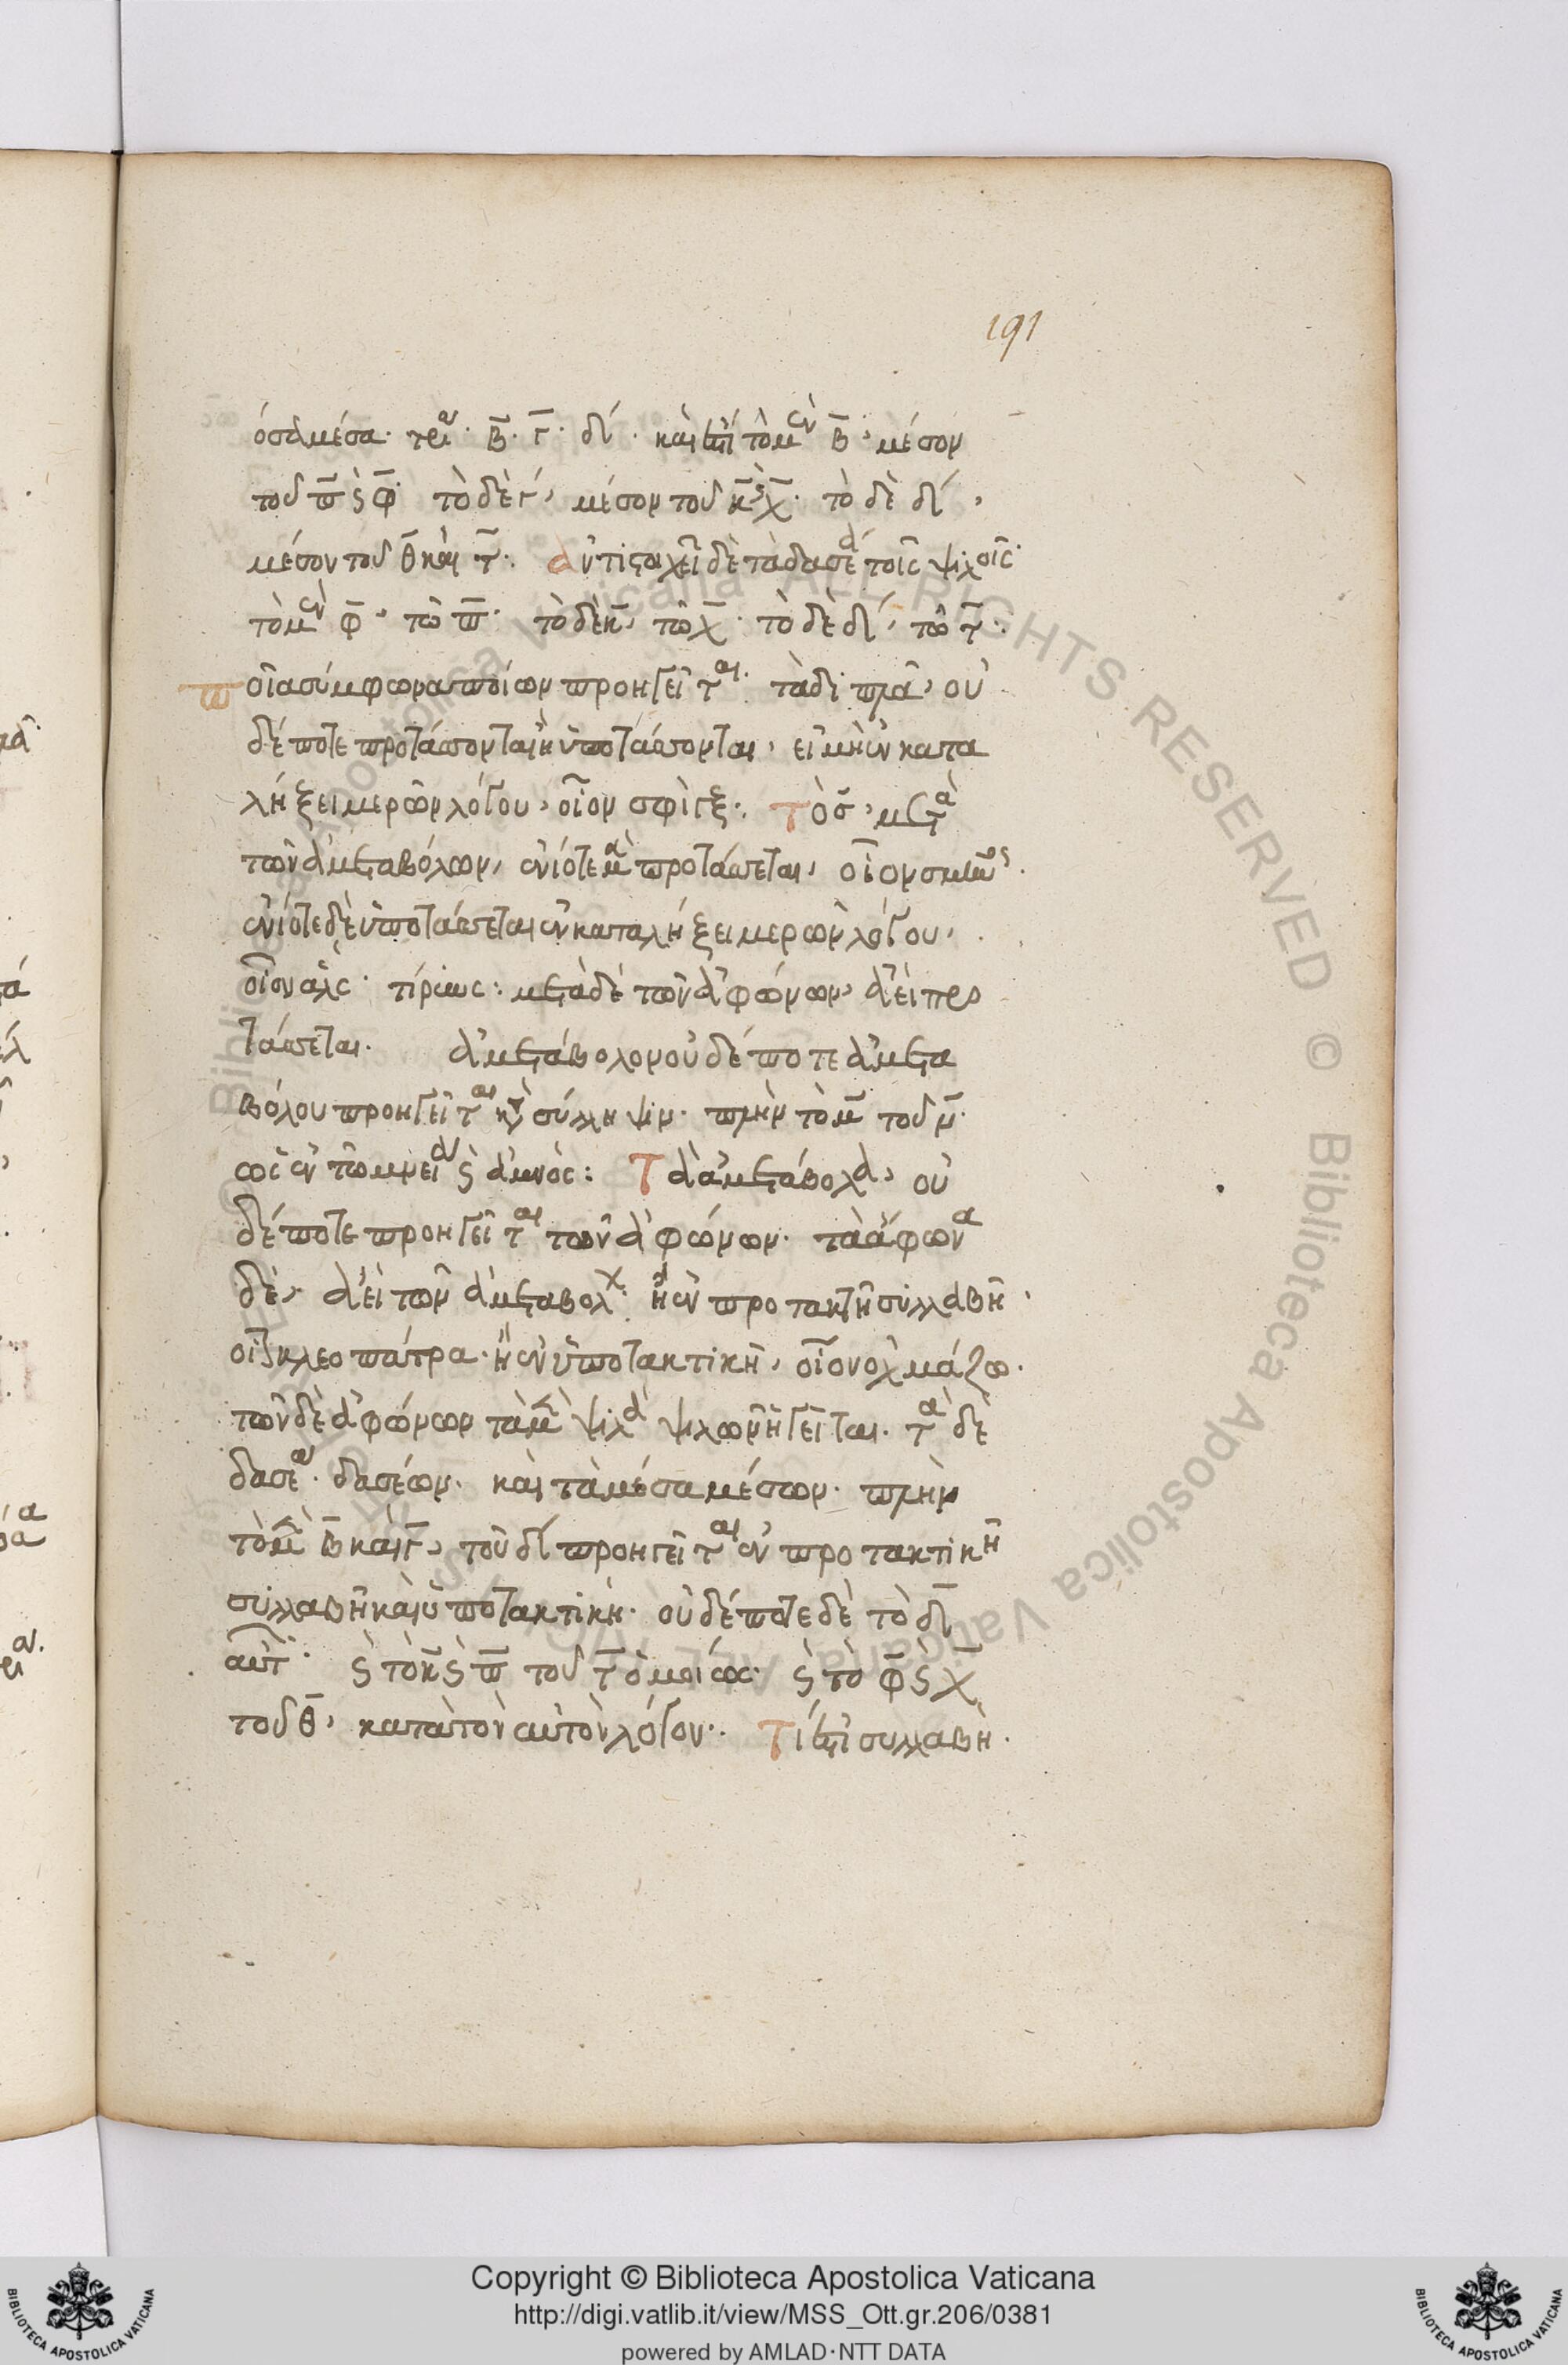 191
ὅσα μέσα· τρία· β̅· γ̅· δ̅· καὶ ἐστὶ τὸ μὲν β̅, μέσον
τοῦ π̅ ϗ φ̅· τὸ δὲ γ̅, μέσον τοῦ κ̅ ϗ χ̅· τὸ δὲ δ̅,
μέσον τοῦ θ̅ καὶ τ̅· ἀντιστοιχεῖ δὲ τὰ δασέα τοῖς ψιλοῖς·
τὸ μὲν φ̅, τῶ π̅· τὸ δὲ κ̅, τῶ χ̅· τὸ δὲ δ̅, τῶ τ̅·
ποῖα σύμφωνα ποίων προηγεῖται· τὰ διπλᾶ, οὐ
δέποτε προτάσσονται ἢ ὑποτάσσονται, εἰ μὴ ἐν κατα
λήξει μερῶν λόγου, οἷον σφίγξ· Τὸ σ̅, μετὰ
τῶν ἀμεταβόλων, ἐνίοτε μὲν προτάσσεται, οἷον
ἐνίοτε δὲ ὑποτάσσεται ἐν καταλήξει μερῶν λόγου,
οἷον ἅλς· τίρινς: μετὰ δὲ τῶν ἀφώνων, ἀεὶ προ
τάσσεται· ἀμετάβολον οὐδέποτε ἀμετα
βόλου προηγεῖται κατὰ σύλληψιν· πλὴν τὸ μ̅ τοῦ ν̅·
ὡς ἐν τῶ μνεία ϗ ἀμνός: Τὰ ἀμετάβολα, οὐ
δέποτε προηγεῖται τῶν ἀφώνων· τὰ ἄφωνα
δέ, ἀεὶ τῶν ἀμεταβόλων· ἢ ἐν προτακτικῆ συλλαβῆ·
οἷον κλεοπάτρα· ἢ ἐν ὑποτακτικῆ, οἷον ὀχμάζω·
τῶν δὲ ἀφώνων τὰ μὲν ψιλὰ ψιλῶν ἡγεῖται· τὰ δὲ
δασέα· δασέων· καὶ τὰ μέσα μέσων· πλὴν
τὸ μὲν β̅ καὶ γ̅, τοῦ δ̅ προηγεῖται ἐν προτακτικῆ
συλλαβῆ καὶ ὑποτακτικῆ· οὐδέποτε δὲ τὸ δ̅
αὐτῶν· ϗ τὸ κ̅ ϗ π̅ τοῦ τ̅ ὁμοίως· ϗ τὸ φ̅ ϗ χ̅
τοῦ θ̅, κατὰ τὸν αὐτὸν λόγον· Τί ἐστι συλλαβή·
Copyright © Biblioteca Apostolica Vaticana
http://digi.vatlib.it/view/MSS_Ott.gr.206/0381
powered by AMLAD·NTT DATA